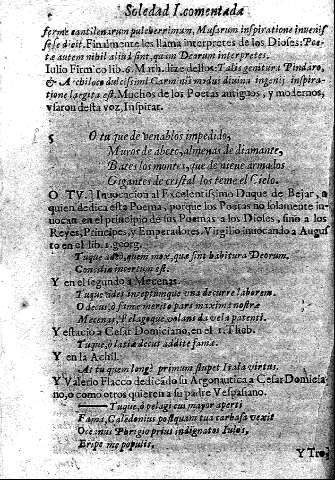 Soledad I. comentada
ferme cantilenarum pulcherrimam, Musarum inspiratione inuenis
se se dixit. Finalmente les llama interpretes de los Dioses: Poe
tae autem nihil aliud sint, quam Deorum interpretes.
Iulio Firmico lib. 6. Math. dize destos: Talis genitura Pindaro,
& Archiloco dulcissimi Carminis modus diuina ingenij inspira-
tione largita est. Muchos de los Poetas antiguos, y modernos,
vsaron desta voz, Inspirar.
5 O tu que de venablos impedido,
Muros de abeto, almenas de diamante,
Bates los montes, que de nieue armados
Gigantes de cristal los teme el Cielo.
O TV.] Inuocacion al Excelentissimo Duque de Bejar, a
quien dedica esta Poema, porque los Poetas no solamente in-
uocan en el principio de sus Poemas a los Dioses, sino a los
Reyes, Principes, y Emperadores. Virgilio inuocando a Augus
to en el lib. 1. georg.
Tuque adeo, quem mox, que sint habitura Deorum.
Consilia incertum est:
Y en el segundo a Mecenas
Tuque ades inceptumque una decurre laborem.
O decus, ô fame merito pars maxima nostrae
Mecenas, Pelagoque volans da vela patenti.
Y estacio a Cesar Domiciano, en el 1. Theb.
Tuque, ô latiae decus addite famae.
Y en la Achil.
At tu quem longè primum stupet Itala virtus.
Y Valerio Flacco dedicado su Argonautica a Cesar Domicia-
no, o como otros quieren a su padre Vespasiano.
Tuque, ô pelagi cui maior aperti
Fama, Caledonius postquam tua carbasa vexit
Oceanus Phrigios prius indignatus Iulos,
Eripe me populis,
Y Tro-